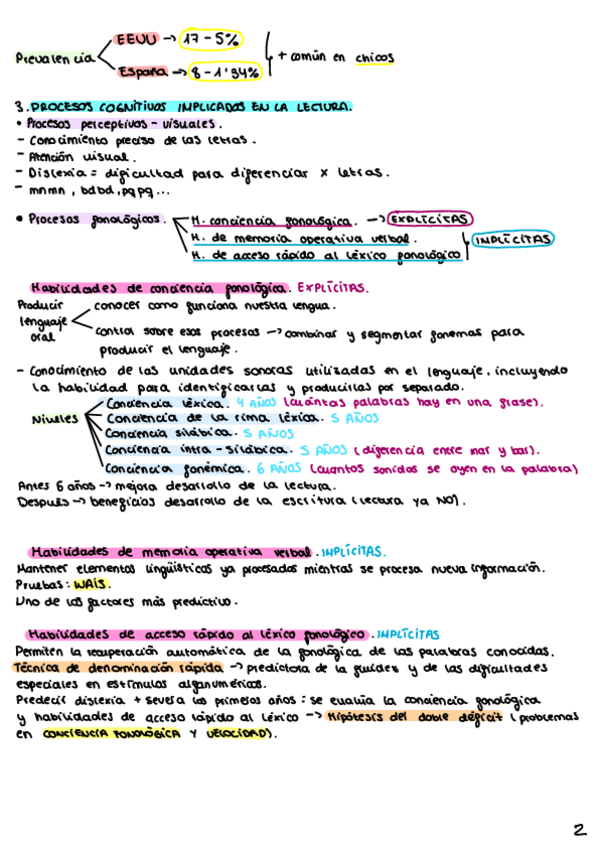 Prevalencia
EEUU → 17 - 5%
España → 8 - 1'34%
+ común en chicos
3. PROCESOS COGNITIVOS IMPLICADOS EN LA LECTURA.
• Procesos perceptivos - visuales.
- Conocimiento preciso de las letras.
- Atención visual.
- Dislexia = dificultad para diferenciar x letras.
- mnmn, bdbd, pqpq...
• Procesos fonológicos.
H. conciencia fonológica. → EXPLÍCITAS
H. de memoria operativa verbal.
H. de acceso rápido al léxico fonológico
IMPLÍCITAS
Habilidades de conciencia fonológica. EXPLÍCITAS.
Producir lenguaje oral
conocer como funciona nuestra lengua.
control sobre esos procesos → combinar y segmentar fonemas para
producir el lenguaje.
- Conocimiento de las unidades sonoras utilizadas en el lenguaje, incluyendo
la habilidad para identificarlas y producirlas por separado.
Niveles
Conciencia léxica. 4 AÑOS (cuántas palabras hay en una frase).
Conciencia de la rima léxica. 5 AÑOS
Conciencia silábica. 5 AÑOS
Conciencia intra - silábica. 5 AÑOS (diferencia entre mar y bar).
Conciencia fonémica. 6 AÑOS (cuantos sonidos se oyen en la palabra)
Antes 6 años → mejora desarrollo de la lectura.
Después → beneficios desarrollo de la escritura (lectura ya NO).
Habilidades de memoria operativa verbal. IMPLÍCITAS.
Mantener elementos lingüísticos ya procesados mientras se procesa nueva información.
Pruebas: WAIS.
Uno de los factores más predictivo.
Habilidades de acceso rápido al léxico fonológico. IMPLÍCITAS
Permiten la recuperación automática de la fonológica de las palabras conocidas.
Técnica de denominación rápida → predictora de la fluidez y de las dificultades
especiales en estímulos alfanuméricos.
Predecir dislexia + severa los primeros años: se evalúa la conciencia fonológica
y habilidades de acceso rápido al léxico → Hipótesis del doble déficit (problemas
en CONCIENCIA FONOLÓGICA Y VELOCIDAD).
2